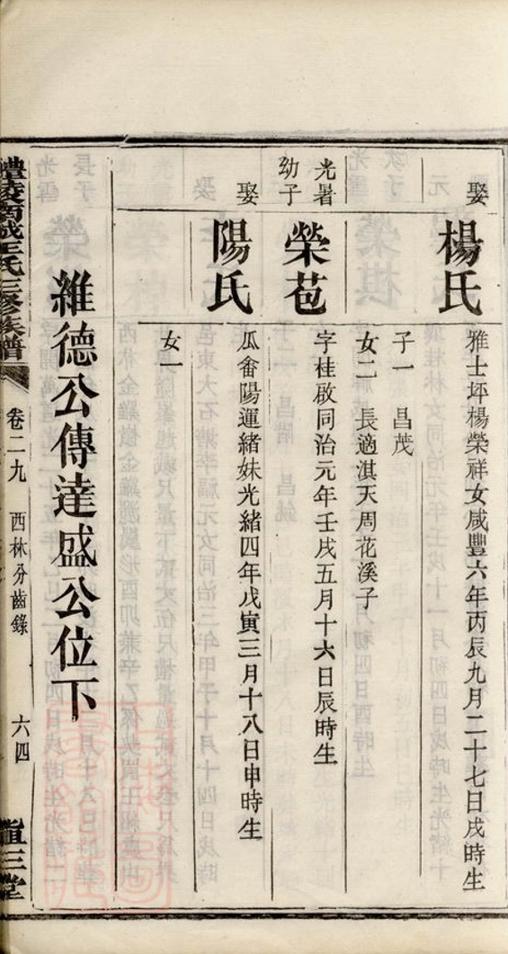 娶
楊氏
雅士坪楊榮祥女咸豐六年丙辰九月二十七日戌時生
子一 昌茂
女二 長適淇天周花溪子
光署
幼子
榮苞
字桂啟同治元年壬戌五月十六日辰時生
娶
陽氏
瓜畬陽運緒妹光緒四年戊寅三月十八日申時生
女一
維德公傳達盛公位下
醴陵南城王氏三修族譜
卷二九 西林分齒錄 六四
三堂